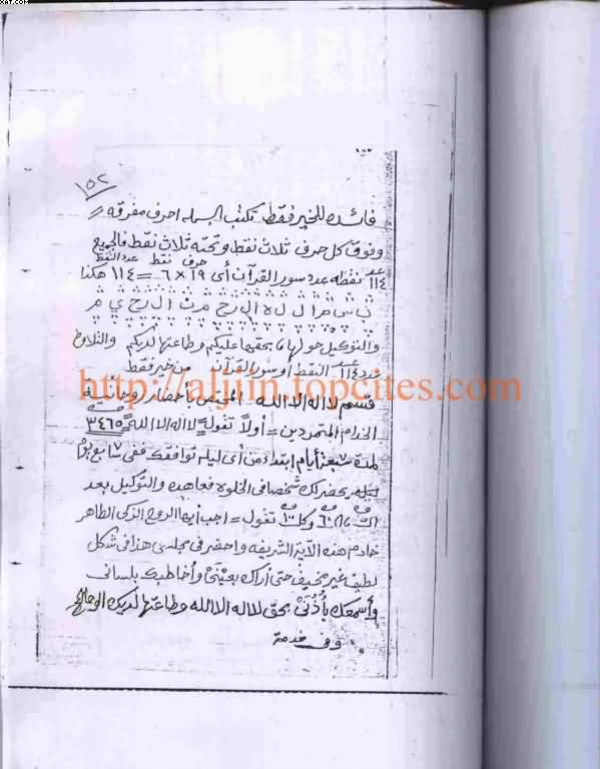 XAT.COM
١٥٢
فائده للخير فقط تكتب البسمله احرف مفرقه =
وفوق كل حرف ثلاث نقط وتحته ثلاث نقط فالجميع
حرف نقط عدد النقط
١١٤ نقطه عدد سور القرآن أى ١٩ × ٦ = ١١٤ هكذا
ب س م ا ل ل ه ا ل ر ح م ن ا ل ر ح ي م
والتوكيل حولها، بحقها عليكم وطاعتها لديكم والتلاوة
١١٤ عدد النقط أو سور القرآن من خير فقط
http://aljnin.topcites.com
قسم لا اله الا الله المختص بأحضار روحانية
الخدام المتمردين = أولاً تقول = لا اله الا الله = ٣٤٦٥
لمدة ٧ سبعة أيام ابتداء من أى ليله توافقك ففى سابع يوم
ليله يحضر لك شخصا فى الخلوه فعاهده والتوكيل بعد
وكل ١٠٠ تقول = اجب أيها الروح الزكى الطاهر
خادم هذه الآية الشريفه واحضر فى مجلسى هذا فى شكل
لطيف غير مخيف حتى أراك بعينَىْ وأخاطبك بلسانى
وأسمعك بأُذنَىْ بحق لا اله الا الله وطاعتها لديك
وفى خدمة